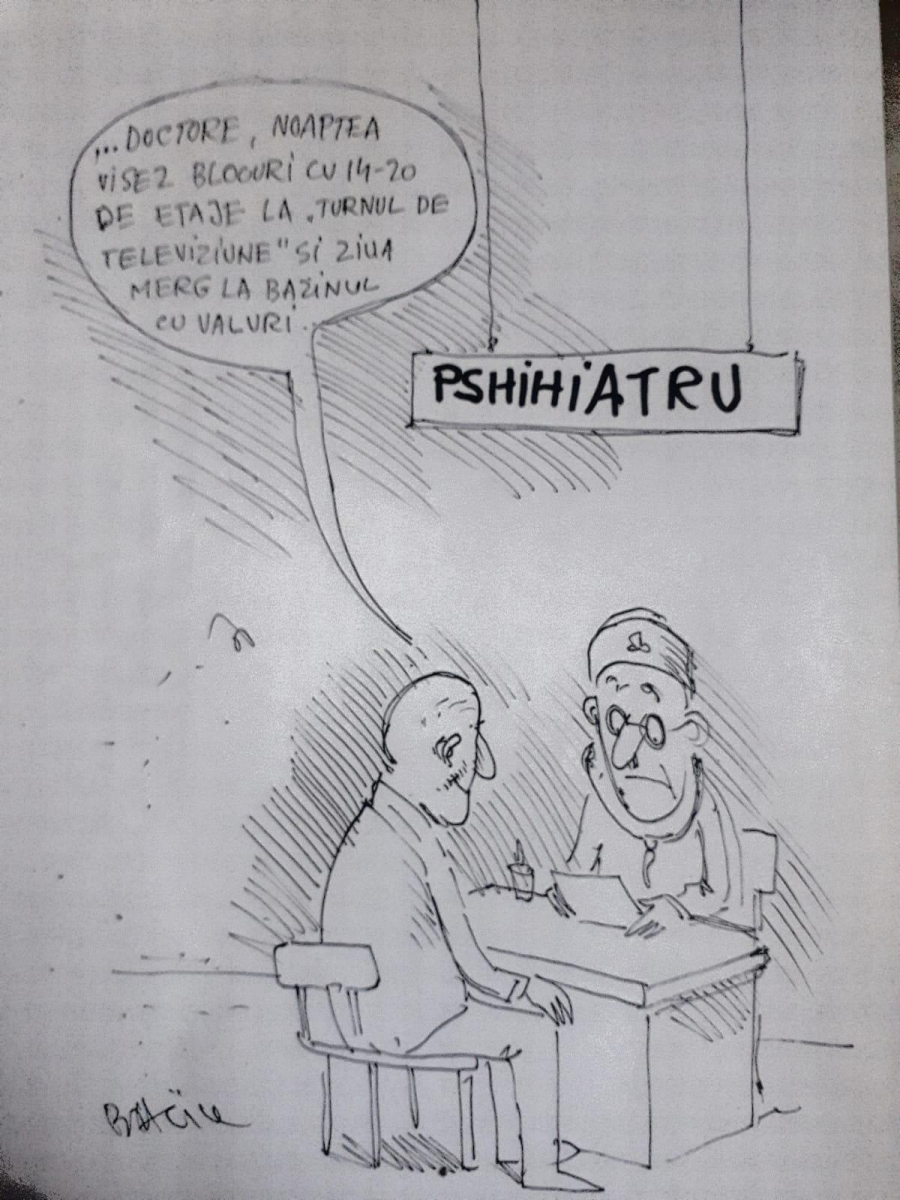 ... DOCTORE, NOAPTEA
VISEZ BLOCURI CU 14-20
DE ETAJE LA "TURNUL DE
TELEVIZIUNE" SI ZIUA
MERG LA BAZINUL
CU VALURI.
PSHIHIATRU